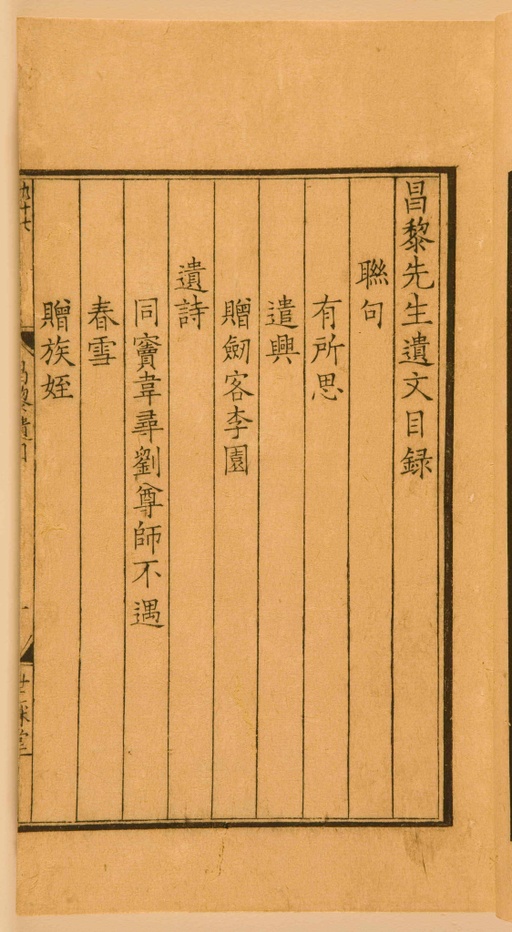 昌黎先生遺文目錄
聯句
有所思
遣興
贈劒客李園
遺詩
同竇韋尋劉尊師不遇
春雪
贈族姪